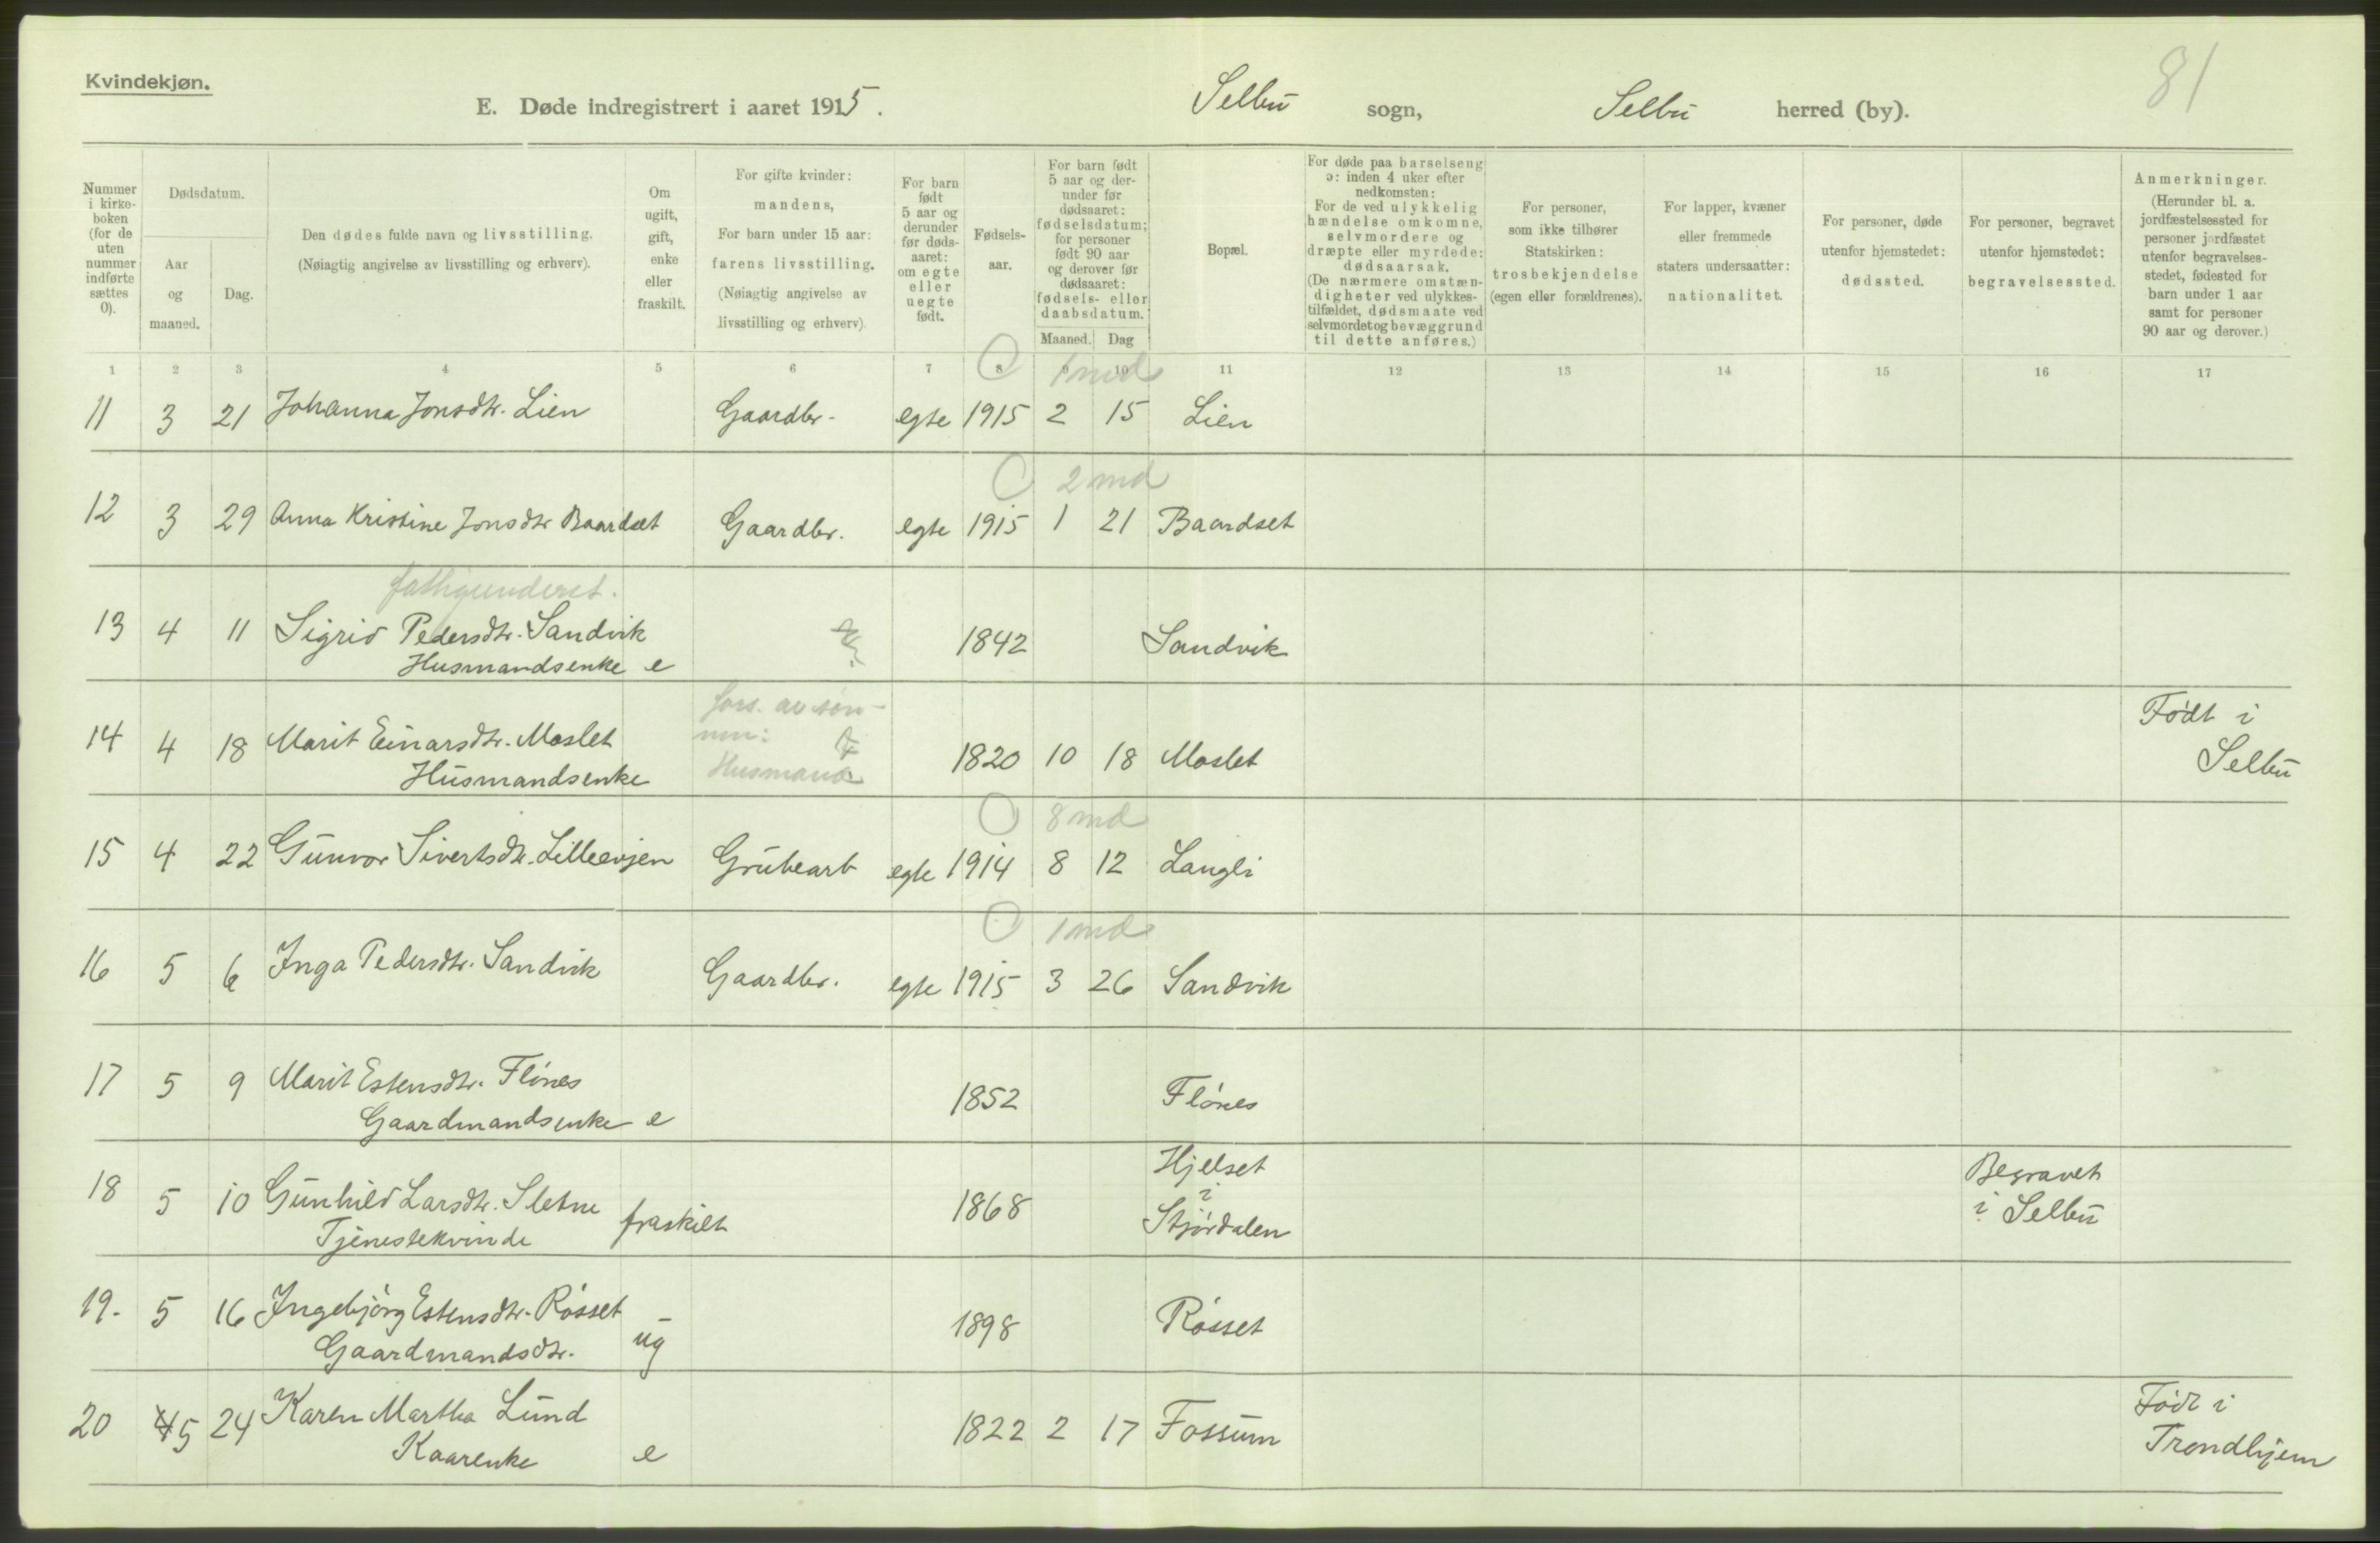 Kvindekjøn.
81
E. Døde indregistrert i aaret 1915. Selbu sogn, Selbu herred (by).
Nummer i kirke-boken (for de uten nummer indførte sættes 0).
Dødsdatum.
Aar og maaned.
Dag.
Den dødes fulde navn og livsstilling.
(Nøiagtig angivelse av livsstilling og erhverv).
Om ugift, gift, enke eller fraskilt.
For gifte kvinder: mandens,
For barn under 15 aar: farens livsstilling.
(Nøiagtig angivelse av livsstilling og erhverv).
For barn født 5 aar og derunder før døds-aaret: om egte eller uegte født.
Fødsels-aar.
For barn født 5 aar og der-under før dødsaaret: fødselsdatum; for personer født 90 aar og derover før dødsaaret: fødsels- eller daabsdatum.
Maaned. Dag
Bopæl.
For døde paa barselseng ɔ: inden 4 uker efter nedkomsten:
For de ved ulykkelig hændelse omkomne, selvmordere og dræpte eller myrdede: dødsaarsak.
(De nærmere omstæn-digheter ved ulykkes-tilfældet, dødsmaate ved selvmordet og bevæggrund til dette anføres.)
For personer, som ikke tilhører Statskirken: trosbekjendelse (egen eller forældrenes).
For lapper, kvæner eller fremmede staters undersaatter: nationalitet.
For personer, døde utenfor hjemstedet: dødssted.
For personer, begravet utenfor hjemstedet: begravelsessted.
Anmerkninger.
(Herunder bl. a. jordfæstelsessted for personer jordfæstet utenfor begravelses-stedet, fødested for barn under 1 aar samt for personer 90 aar og derover.)
1 2 3 4 5 6 7 8 9 10 11 12 13 14 15 16 17
1 md
11 3 21 Johanna Jonsdtr. Lien Gaardbr. egte 1915 2 15 Lien
2 md
12 3 29 Anna Kristine Jonsdtr Baardset Gaardbr. egte 1915 1 21 Baardset
fattigunderst.
13 4 11 Sigrid Pedersdtr. Sandvik 1842 Sandvik
Husmandsenke e
fors. av søn-
nen:
Født i
14 4 18 Marit Einarsdtr. Moslet 1820 10 18 Moslet Selbu
Husmandsenke Husmand
8 md
15 4 22 Gunvor Sivertsdtr. Lilleevjen Grubearb egte 1914 8 12 Langli
1 md
16 5 6 Inga Pedersdtr. Sandvik Gaardbr. egte 1915 3 26 Sandvik
17 5 9 Marit Estensdtr. Flönes 1852 Flönes
Gaardmandsenke e
Hjelset Begravet
18 5 10 Gunhild Larsdtr. Sletne fraskilt 1868 i Stjördalen i Selbu
Tjenestekvinde
19. 5 16 Ingebjörg Estensdtr. Rösset ug 1898 Rösset
Gaardmandsdtr.
Født i
20 4 5 24 Karen Martha Lund 1822 2 17 Fossum Trondhjem
Kaarenke e